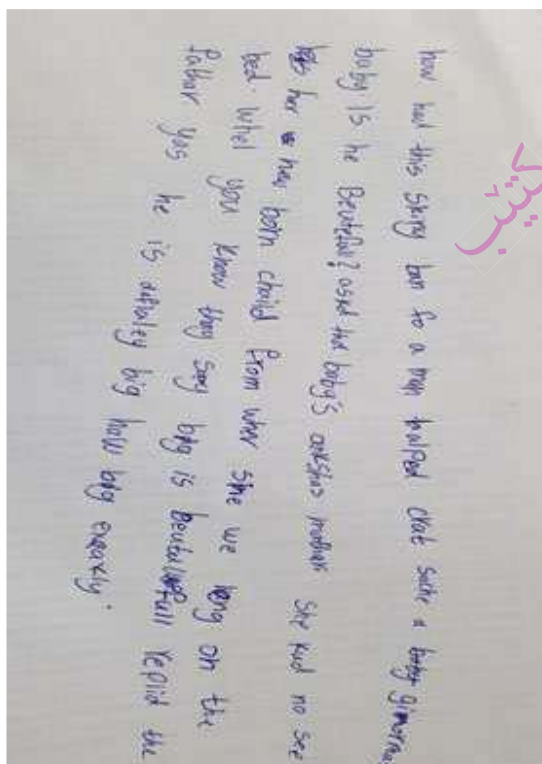 how had this skiny ban fo a man halped crat suche a
baby is he Beuteful? asked the baby's ankshas mother she kud no see
her new born chaild from wher she we leng on the
bed. whel you know they say big is beutalfull Replid the
fathar yes he is difnaley big how big exexkly.